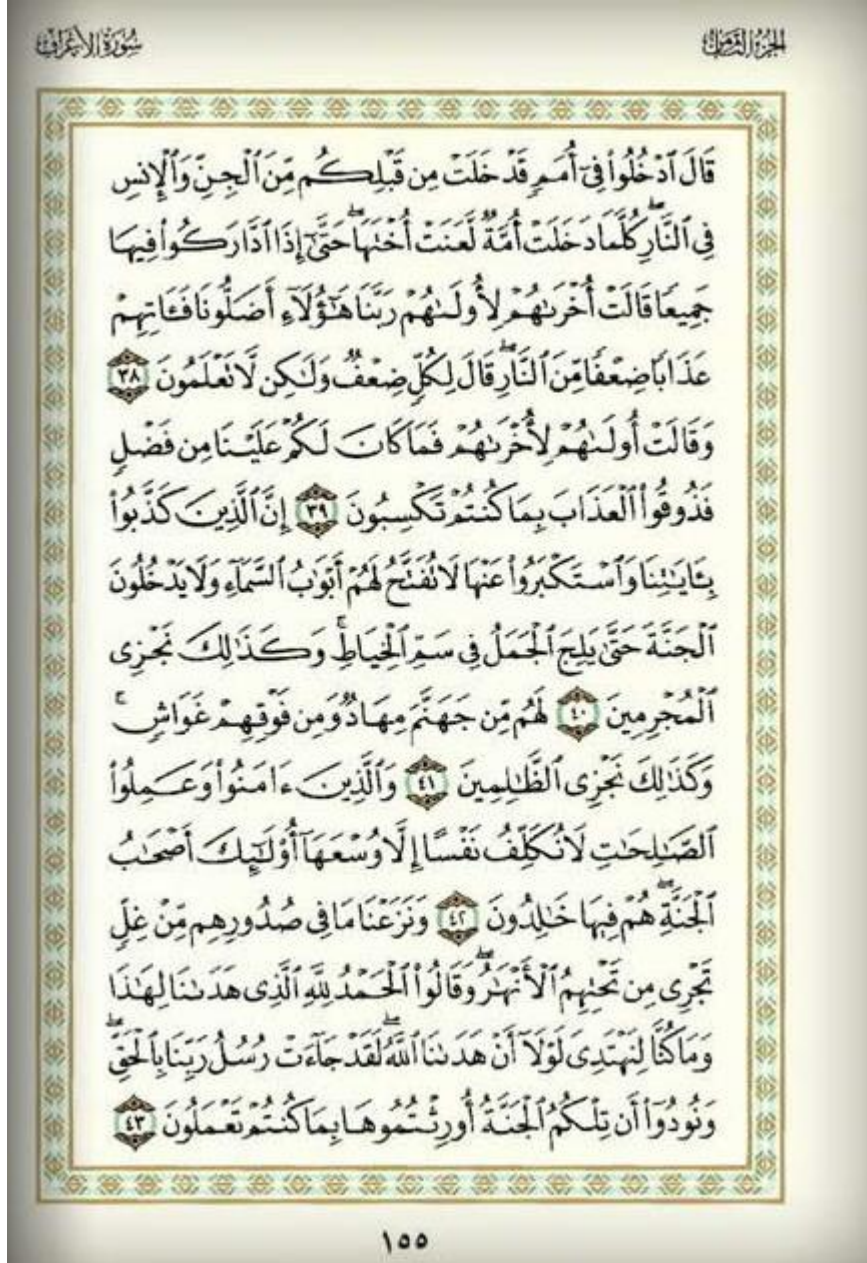 الجزء الثامن سورة الأعراف
قَالَ ٱدْخُلُوا۟ فِىٓ أُمَمٍ قَدْ خَلَتْ مِن قَبْلِكُم مِّنَ ٱلْجِنِّ وَٱلْإِنسِ
فِى ٱلنَّارِ ۖ كُلَّمَا دَخَلَتْ أُمَّةٌ لَّعَنَتْ أُخْتَهَا ۖ حَتَّىٰٓ إِذَا ٱدَّارَكُوا۟ فِيهَا
جَمِيعًا قَالَتْ أُخْرَىٰهُمْ لِأُولَىٰهُمْ رَبَّنَا هَٰٓؤُلَآءِ أَضَلُّونَا فَـَٔاتِهِمْ
عَذَابًا ضِعْفًا مِّنَ ٱلنَّارِ ۖ قَالَ لِكُلٍّ ضِعْفٌ وَلَٰكِن لَّا تَعْلَمُونَ ٣٨
وَقَالَتْ أُولَىٰهُمْ لِأُخْرَىٰهُمْ فَمَا كَانَ لَكُمْ عَلَيْنَا مِن فَضْلٍ
فَذُوقُوا۟ ٱلْعَذَابَ بِمَا كُنتُمْ تَكْسِبُونَ ٣٩ إِنَّ ٱلَّذِينَ كَذَّبُوا۟
بِـَٔايَٰتِنَا وَٱسْتَكْبَرُوا۟ عَنْهَا لَا تُفَتَّحُ لَهُمْ أَبْوَٰبُ ٱلسَّمَآءِ وَلَا يَدْخُلُونَ
ٱلْجَنَّةَ حَتَّىٰ يَلِجَ ٱلْجَمَلُ فِى سَمِّ ٱلْخِيَاطِ ۚ وَكَذَٰلِكَ نَجْزِى
ٱلْمُجْرِمِينَ ٤٠ لَهُم مِّن جَهَنَّمَ مِهَادٌ وَمِن فَوْقِهِمْ غَوَاشٍ ۚ
وَكَذَٰلِكَ نَجْزِى ٱلظَّٰلِمِينَ ٤١ وَٱلَّذِينَ ءَامَنُوا۟ وَعَمِلُوا۟
ٱلصَّٰلِحَٰتِ لَا نُكَلِّفُ نَفْسًا إِلَّا وُسْعَهَآ أُو۟لَٰٓئِكَ أَصْحَٰبُ
ٱلْجَنَّةِ ۖ هُمْ فِيهَا خَٰلِدُونَ ٤٢ وَنَزَعْنَا مَا فِى صُدُورِهِم مِّنْ غِلٍّ
تَجْرِى مِن تَحْتِهِمُ ٱلْأَنْهَٰرُ ۖ وَقَالُوا۟ ٱلْحَمْدُ لِلَّهِ ٱلَّذِى هَدَىٰنَا لِهَٰذَا
وَمَا كُنَّا لِنَهْتَدِىَ لَوْلَآ أَنْ هَدَىٰنَا ٱللَّهُ ۖ لَقَدْ جَآءَتْ رُسُلُ رَبِّنَا بِٱلْحَقِّ ۖ
وَنُودُوٓا۟ أَن تِلْكُمُ ٱلْجَنَّةُ أُورِثْتُمُوهَا بِمَا كُنتُمْ تَعْمَلُونَ ٤٣
١٥٥